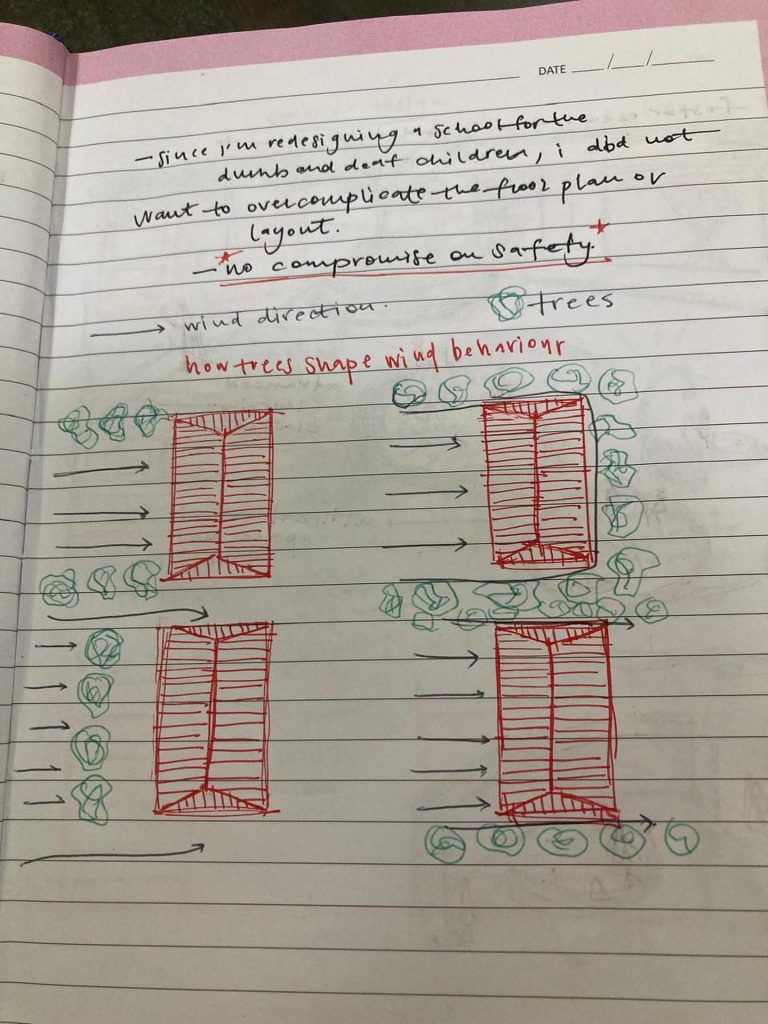 DATE ___/___/___
- since i'm redesigning a school for the
dumb and deaf children, i did not
want to overcomplicate the floor plan or
layout.
- no compromise on safety.
→ wind direction.
trees
how trees shape wind behaviour